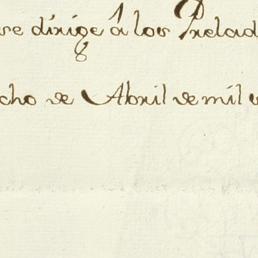 se dirige á los Prelad
cho de Abril de mil